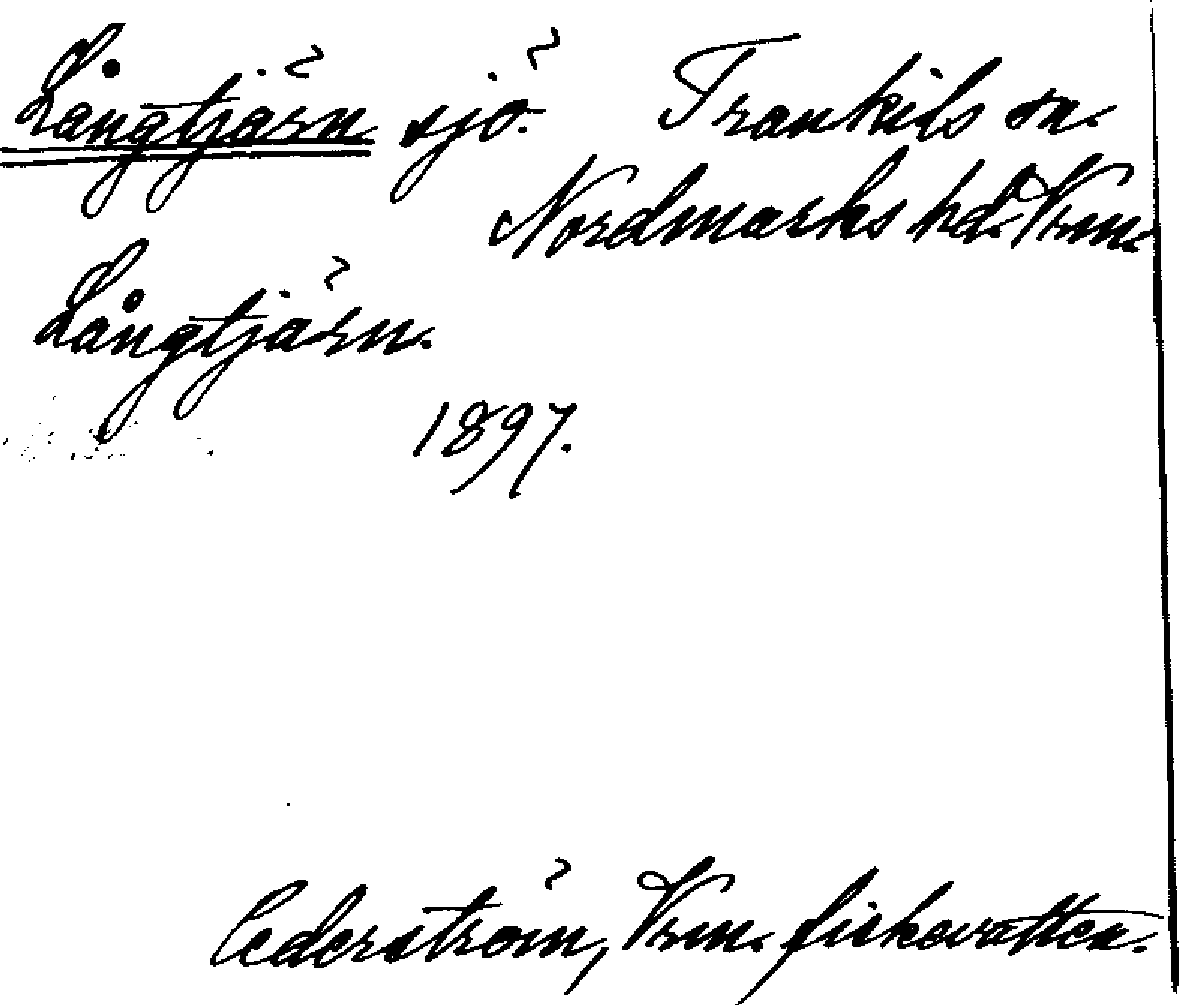 Långtjärn sjö. Trankils sn.
Nordmarks hd. Vrm.
Långtjärn.
1897.
Cederström, Vrm. fiskevatten.